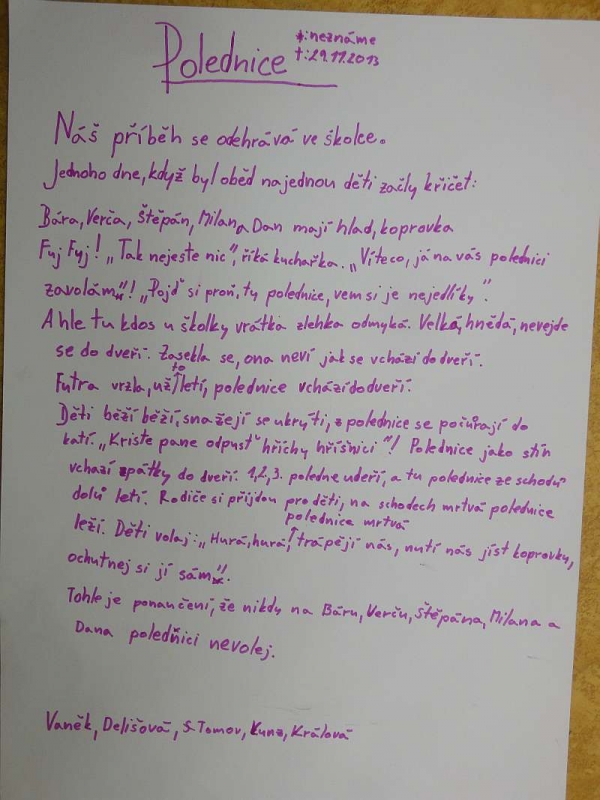 Polednice
*: neznáme
†: 29.11.2013
Náš příběh se odehrává ve školce.
Jednoho dne, když byl oběd najednou děti začly křičet:
Bára, Verča, Štěpán, Milan a Dan mají hlad, koprovka
Fuj Fuj! „Tak nejeste nic", říká kuchařka. „Víteco, já na vás polednici
zavolám"! „Pojď si proň, ty polednice, vem si je nejedlíky".
A hle tu kdos u školky vrátka zlehka odmyká. Velká, hnědá, nevejde
se do dveří. Zasekla se, ona neví jak se vchází do dveří.
Futra vrzla, už to letí, polednice vchází do dveří.
Děti běží běží, snažejí se ukrýti, z polednice se počůrají do
katí. „Kriste pane odpusť hříchy hříšnici"! Polednice jako stín
vchazí zpátky do dveří. 1, 2, 3. poledne udeří, a tu polednice ze schodů
dolů letí. Rodiče si přijdou pro děti, na schodech mrtvá polednice
leží. Děti volaj: „Hurá, hurá, polednice mrtvá! trápějí nás, nutí nás jíst koprovku,
ochutnej si jí sám".
Tohle je ponaučení, že nikdy na Báru, Verču, Štěpána, Milana a
Dana poledňici nevolej.
Vaněk, Delišová, S. Tomov, Kunz, Králová